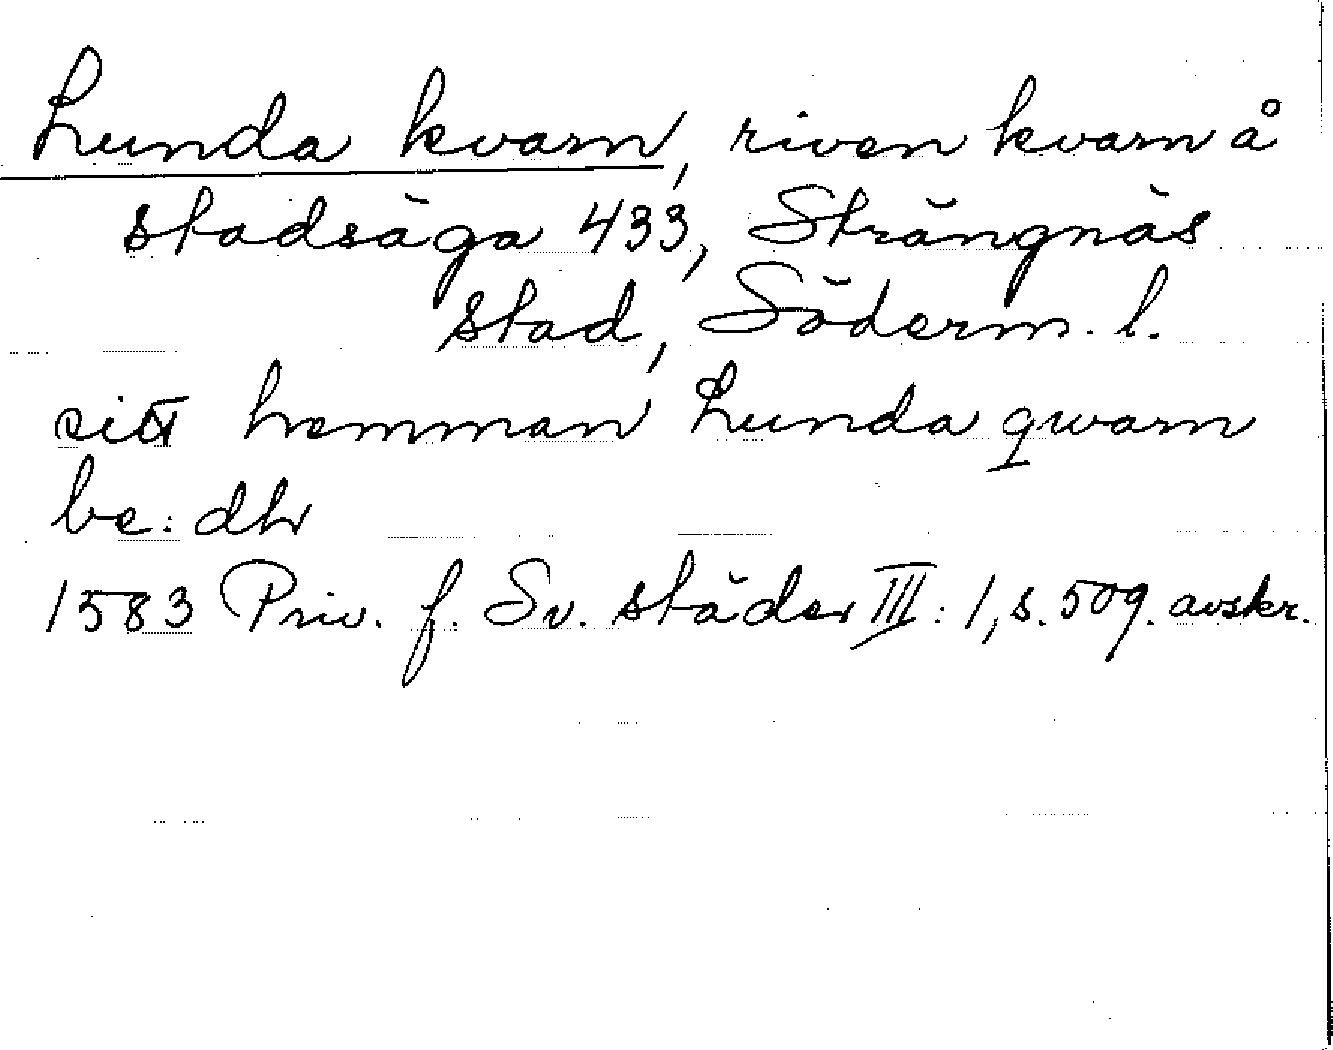 Lunda kvarn, riven kvarn å
stadsäga 433, Strängnäs
stad, Söderm. l.
sitt hemman Lunda qwarn
be: dhr
1583 Priv. f. Sv. städer III: 1, s. 509. avskr.